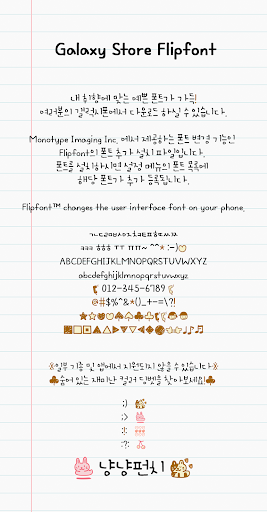 Galaxy Store Flipfont
내 취향에 맞는 예쁜 폰트가 가득!
여러분의 갤럭시폰에서 다운로드 하실 수 있습니다.
Monotype Imaging Inc. 에서 제공하는 폰트 변경 기능인
Flipfont의 폰트 추가 설치 파일입니다.
폰트를 설치하시면 설정 메뉴의 폰트 목록에
해당 폰트가 추가 등록됩니다.
Flipfont™ changes the user interface font on your phone.
ㄱㄴㄷㄹㅁㅂㅅㅇㅈㅊㅋㅌㅍㅎㄲㅆㅉ
ㅋㅋㅋ ㅎㅎㅎ ㅜㅜ ㅠㅠ~ ^^* :-)♡
ABCDEFGHIJKLMNOPQRSTUVWXYZ
abcdefghijklmnopqrstuvwxyz
012-345-6789
@#$%^&*()_+-=\?!
☆★♡♥♤♠♧♣
■□▲△▶▽▼◀◆♩♪♬
※일부 기종 및 앱에서 지원되지 않을 수 있습니다※
♣숨어 있는 재미난 컬러 딩벳을 찾아보세요!♣
:)
:>
:!
:?
냥냥펀치